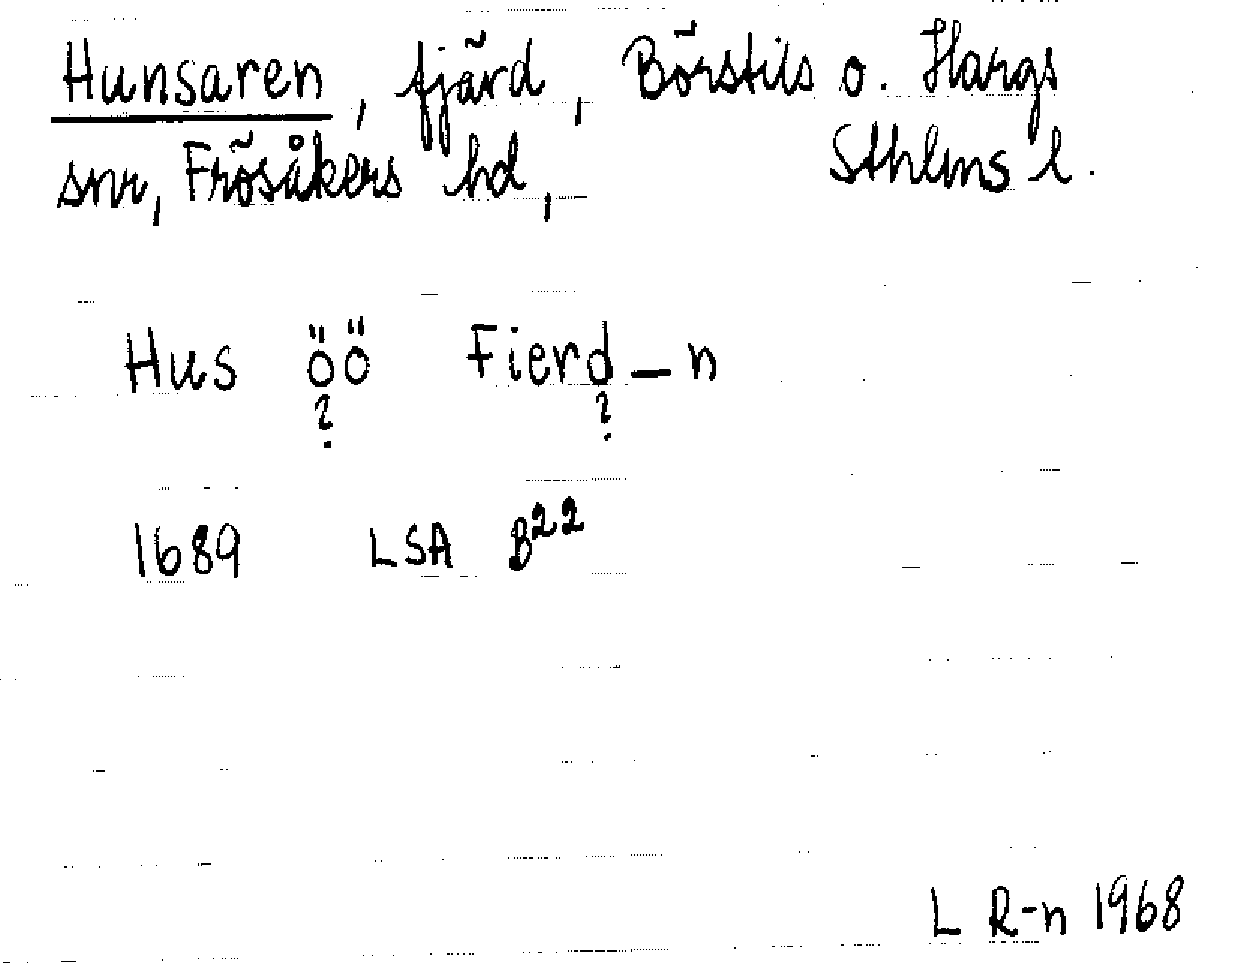 Hunsaren, fjärd, Börstils o. Hargs
snr, Frösåkers hd, Sthlms l.
Hus öö Fierd_n
? ?
1689 LSA B22
L R-n 1968